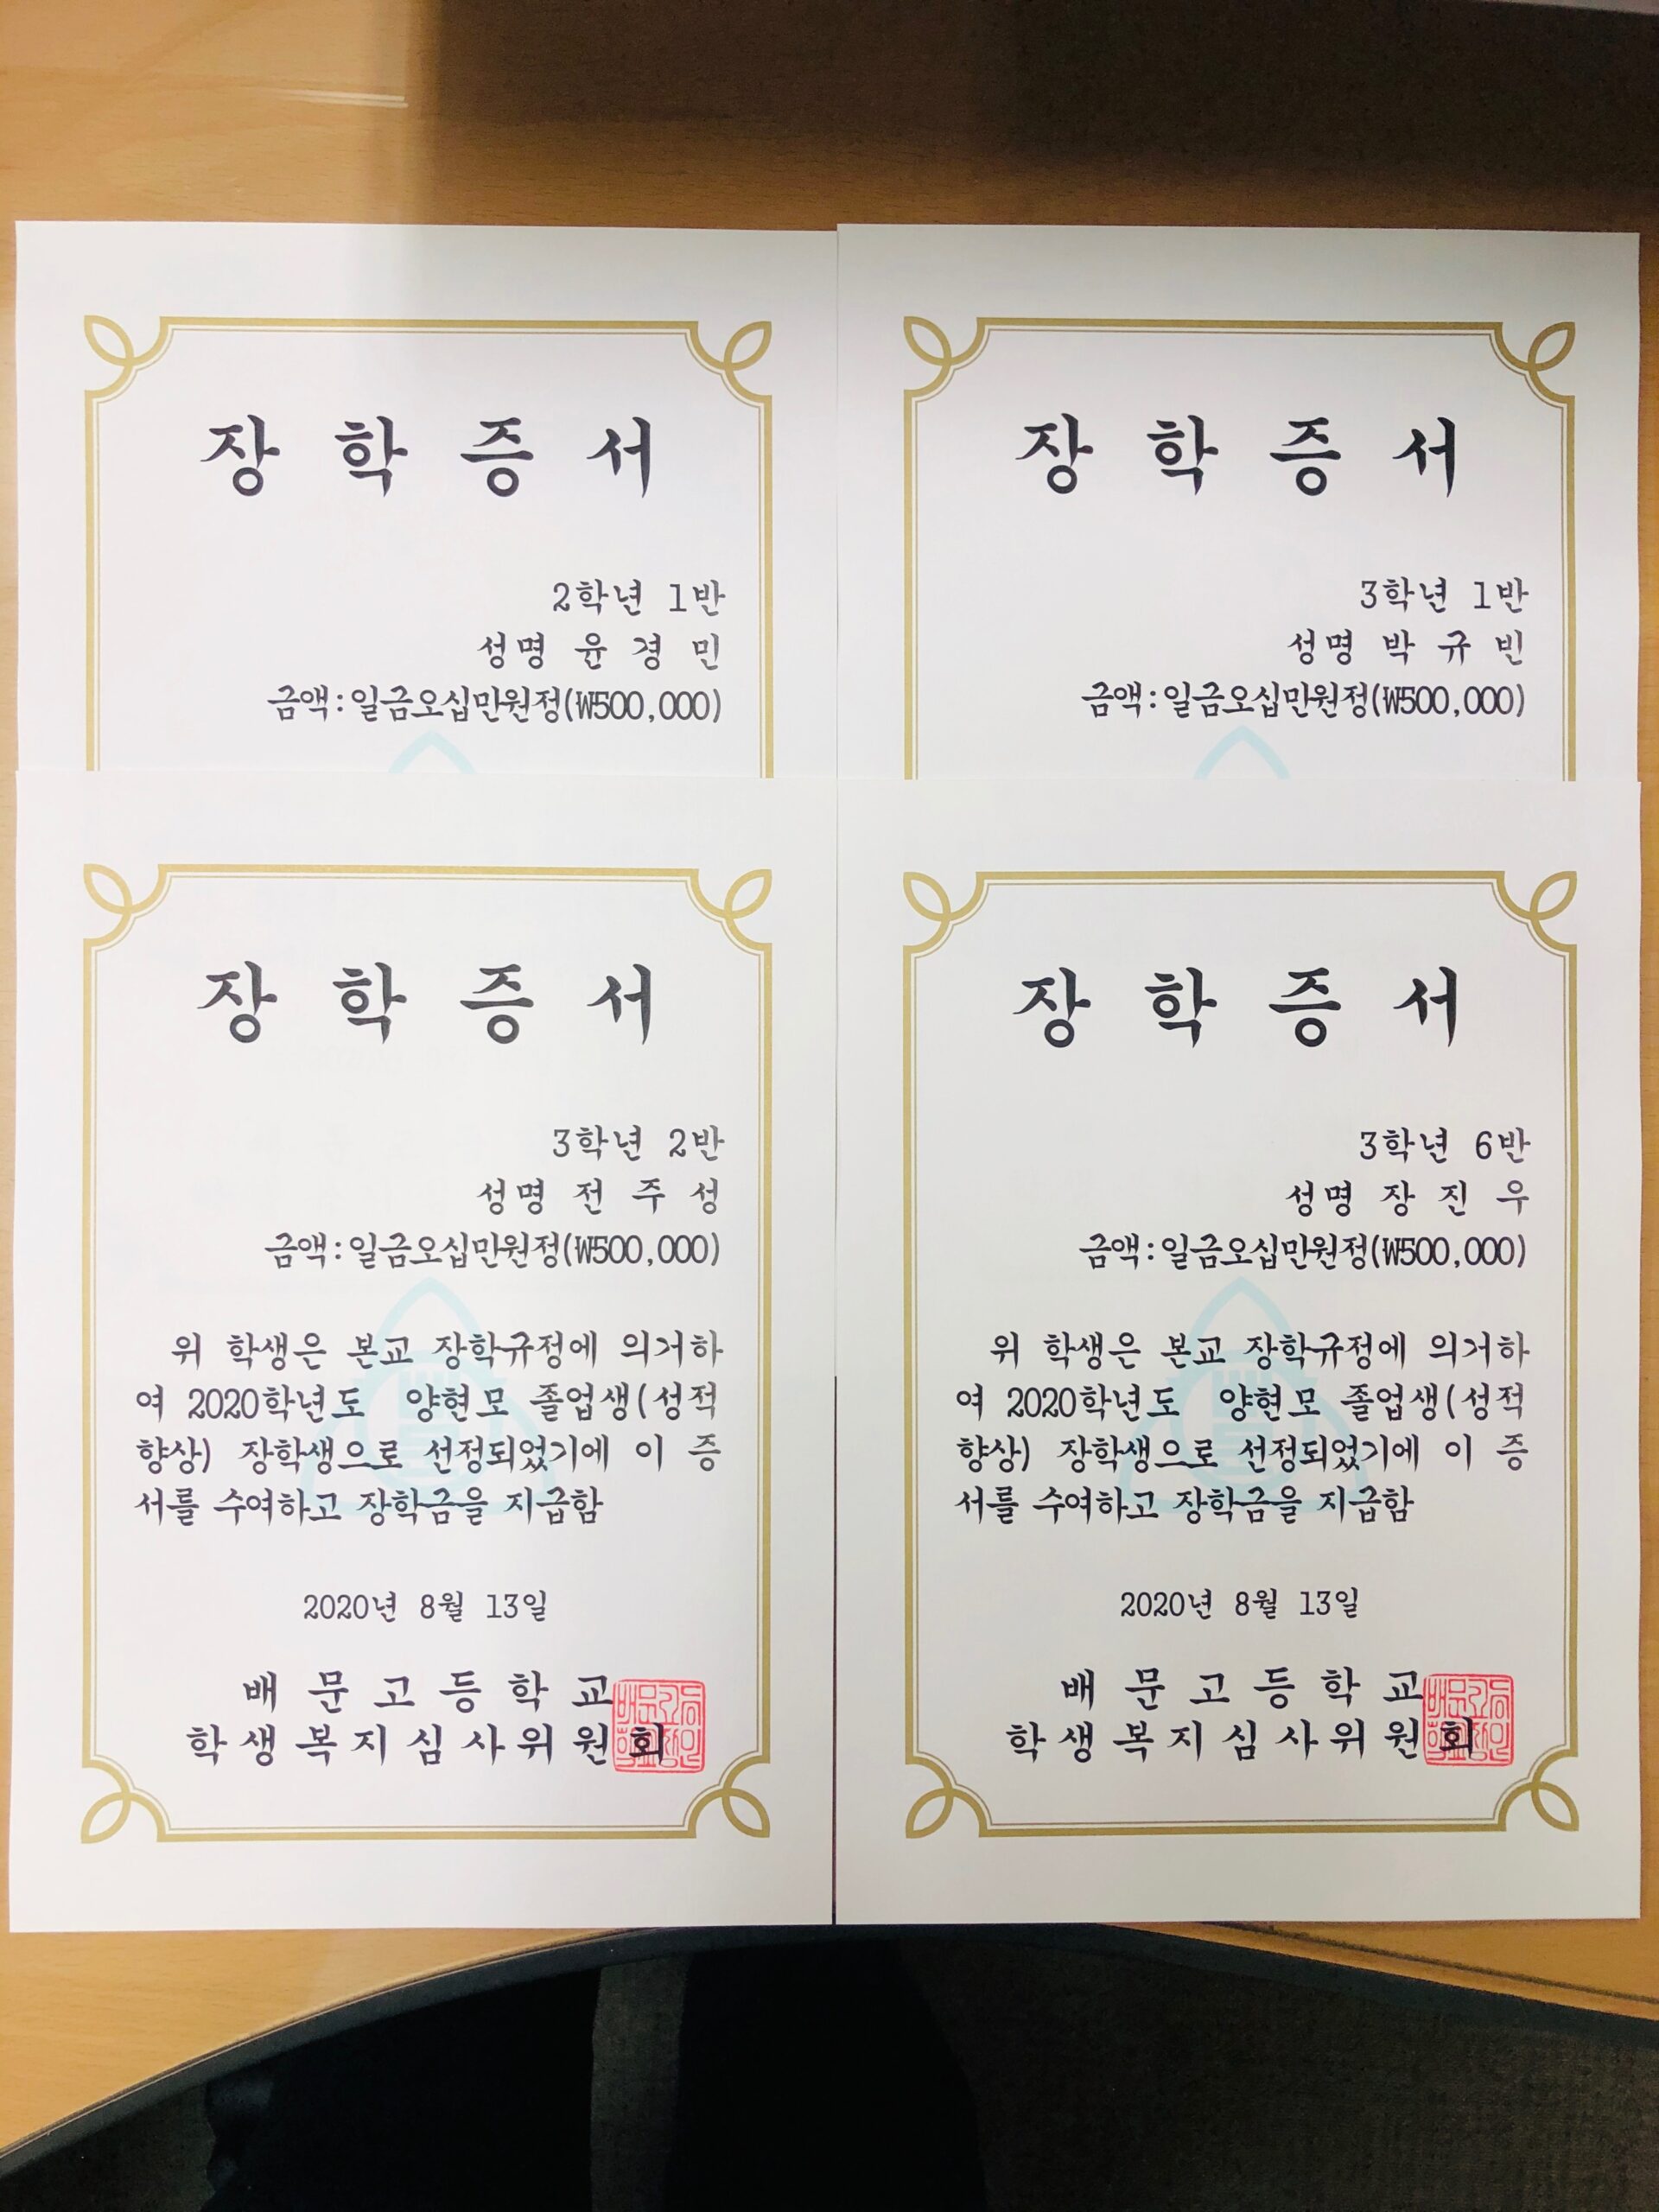 장 학 증 서
2학년 1반
성명 윤 경 민
금액:일금오십만원정(₩500,000)
장 학 증 서
3학년 1반
성명 박 규 빈
금액:일금오십만원정(₩500,000)
장 학 증 서
3학년 2반
성명 전 주 성
금액:일금오십만원정(₩500,000)
위 학생은 본교 장학규정에 의거하
여 2020학년도 양현모 졸업생(성적
향상) 장학생으로 선정되었기에 이 증
서를 수여하고 장학금을 지급함
2020년 8월 13일
배 문 고 등 학 교
학 생 복 지 심 사 위 원 회
장 학 증 서
3학년 6반
성명 장 진 우
금액:일금오십만원정(₩500,000)
위 학생은 본교 장학규정에 의거하
여 2020학년도 양현모 졸업생(성적
향상) 장학생으로 선정되었기에 이 증
서를 수여하고 장학금을 지급함
2020년 8월 13일
배 문 고 등 학 교
학 생 복 지 심 사 위 원 회